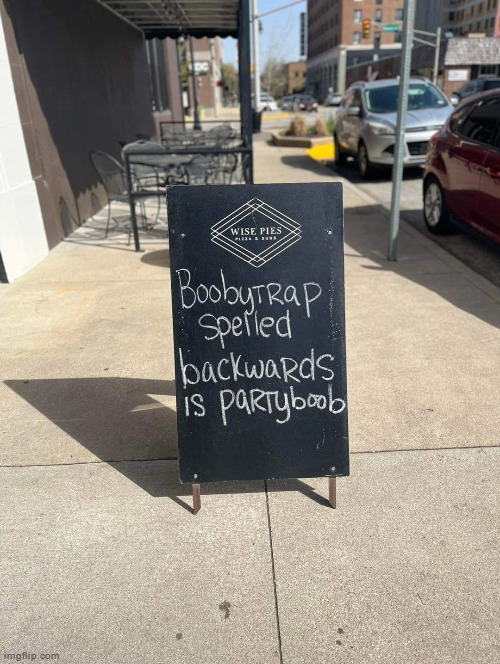 WISE PIES
PIZZA & SUBS
BoobyTRap
spelled
backwaRds
is paRTyboob
imgflip.com